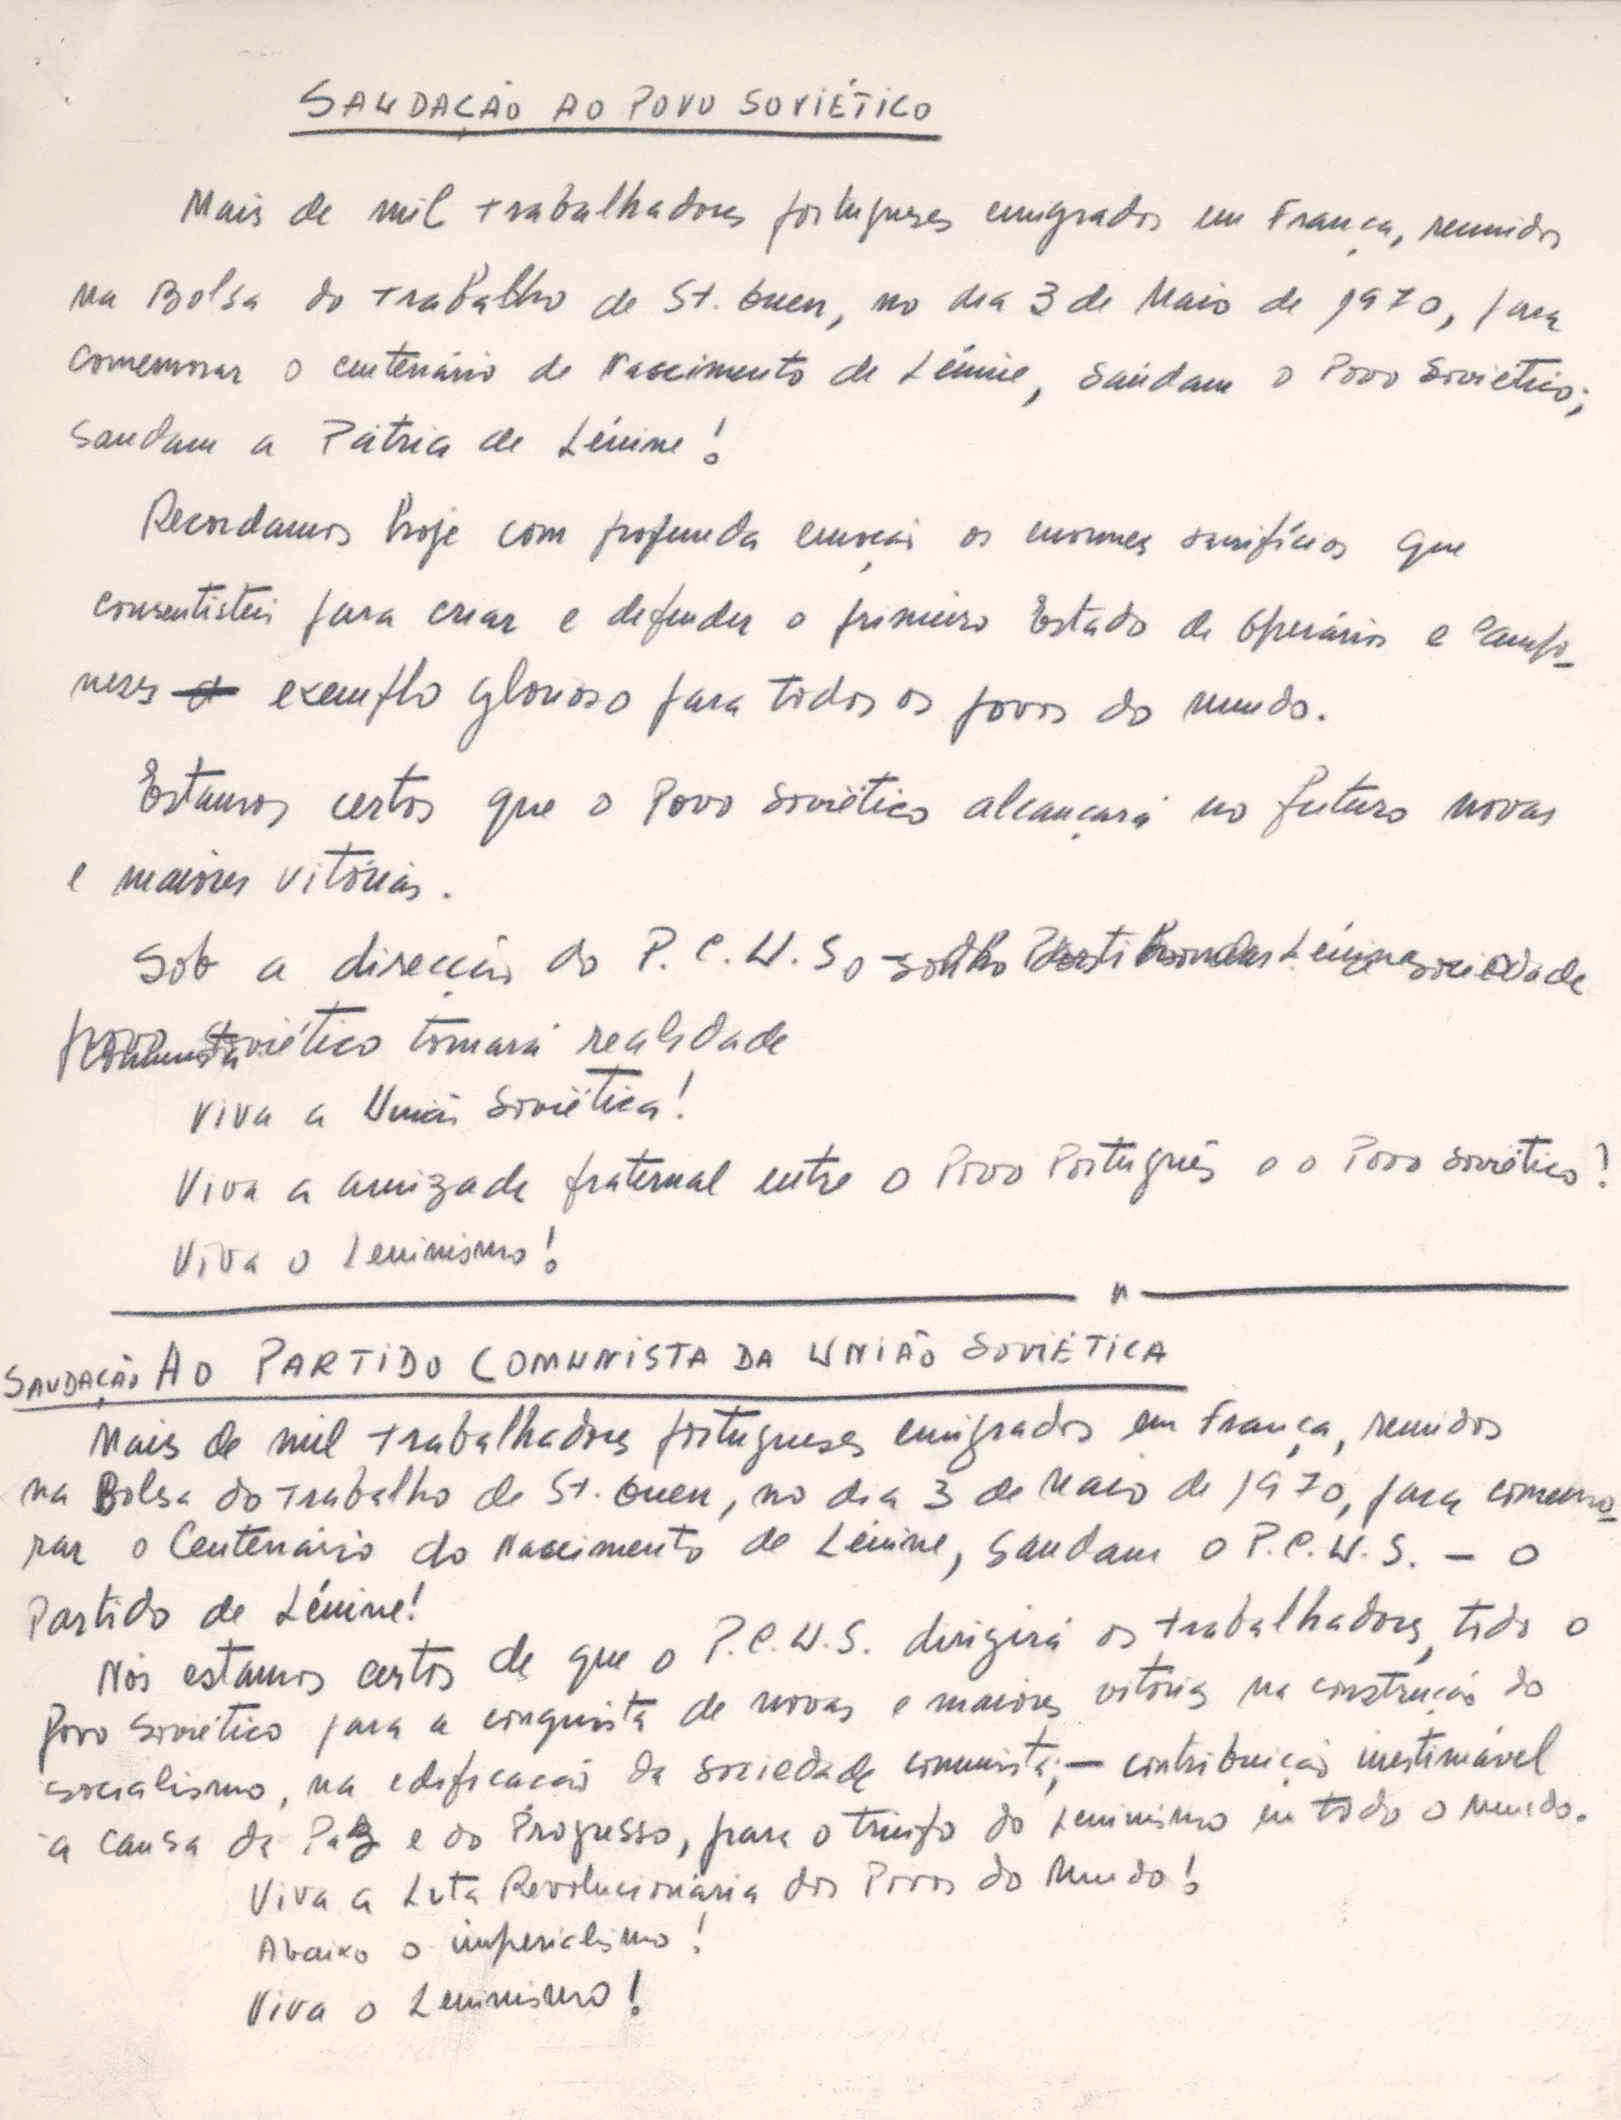 SAUDAÇÃO AO POVO SOVIÉTICO
Mais de mil trabalhadores portugueses emigrados em França, reunidos
na Bolsa do trabalho de St. Ouen, no dia 3 de Maio de 1970, para
comemorar o centenário de Nascimento de Lénine, saúdam o Povo Soviético;
saudam a Pátria de Lénine!
Recordamos hoje com profunda emoção os enormes sacrifícios que
consentisteis para criar e defender o primeiro Estado de Operários e Campo-
neses exemplo glorioso para todos os povos do mundo.
Estamos certos que o Povo Soviético alcançará no futuro novas
e maiores vitórias.
Sob a direcção do P.C.U.S. o Lénine sociedade
povo Soviético tornará realidade
Viva a União Soviética!
Viva a amizade fraternal entre o Povo Português e o Povo Soviético!
Viva o Leninismo!
SAUDAÇÃO AO PARTIDO COMUNISTA DA UNIÃO SOVIÉTICA
Mais de mil trabalhadores portugueses emigrados em França, reunidos
na Bolsa do trabalho de St. Ouen, no dia 3 de Maio de 1970, para comemo-
rar o Centenário do Nascimento de Lénine, saudam o P.C.U.S. - o
Partido de Lénine!
Nós estamos certos de que o P.C.U.S. dirigirá os trabalhadores, todo o
povo Soviético para a conquista de novas e maiores vitórias na construção do
socialismo, na edificação da sociedade comunista; - contribuição inestimável
à causa da Paz e do Progresso, para o triunfo do Leninismo em todo o Mundo.
Viva a Luta Revolucionária dos Povos do Mundo!
Abaixo o imperialismo!
Viva o Leninismo!